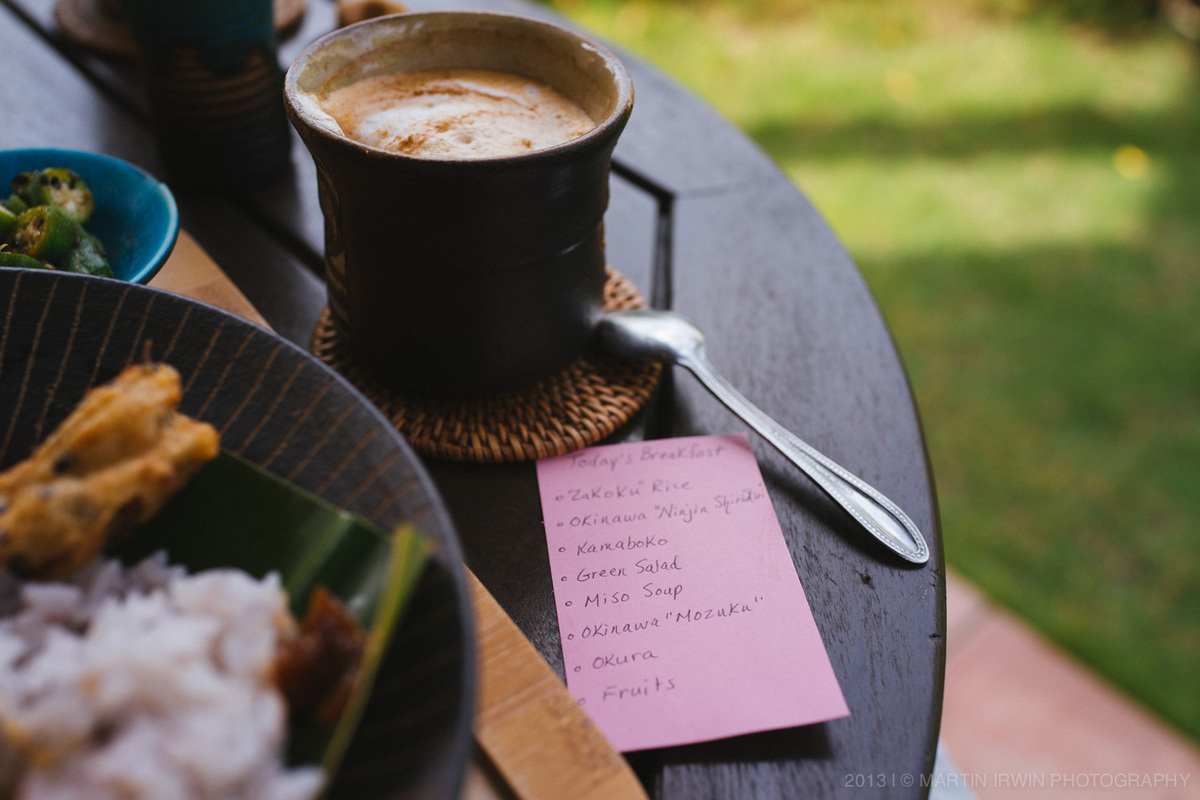 Today's Breakfast
"Zakoku" Rice
Okinawa "Ninjin Shirishiri"
Kamaboko
Green Salad
Miso Soup
Okinawa "Mozuku"
Okura
Fruits
2013 | © MARTIN IRWIN PHOTOGRAPHY